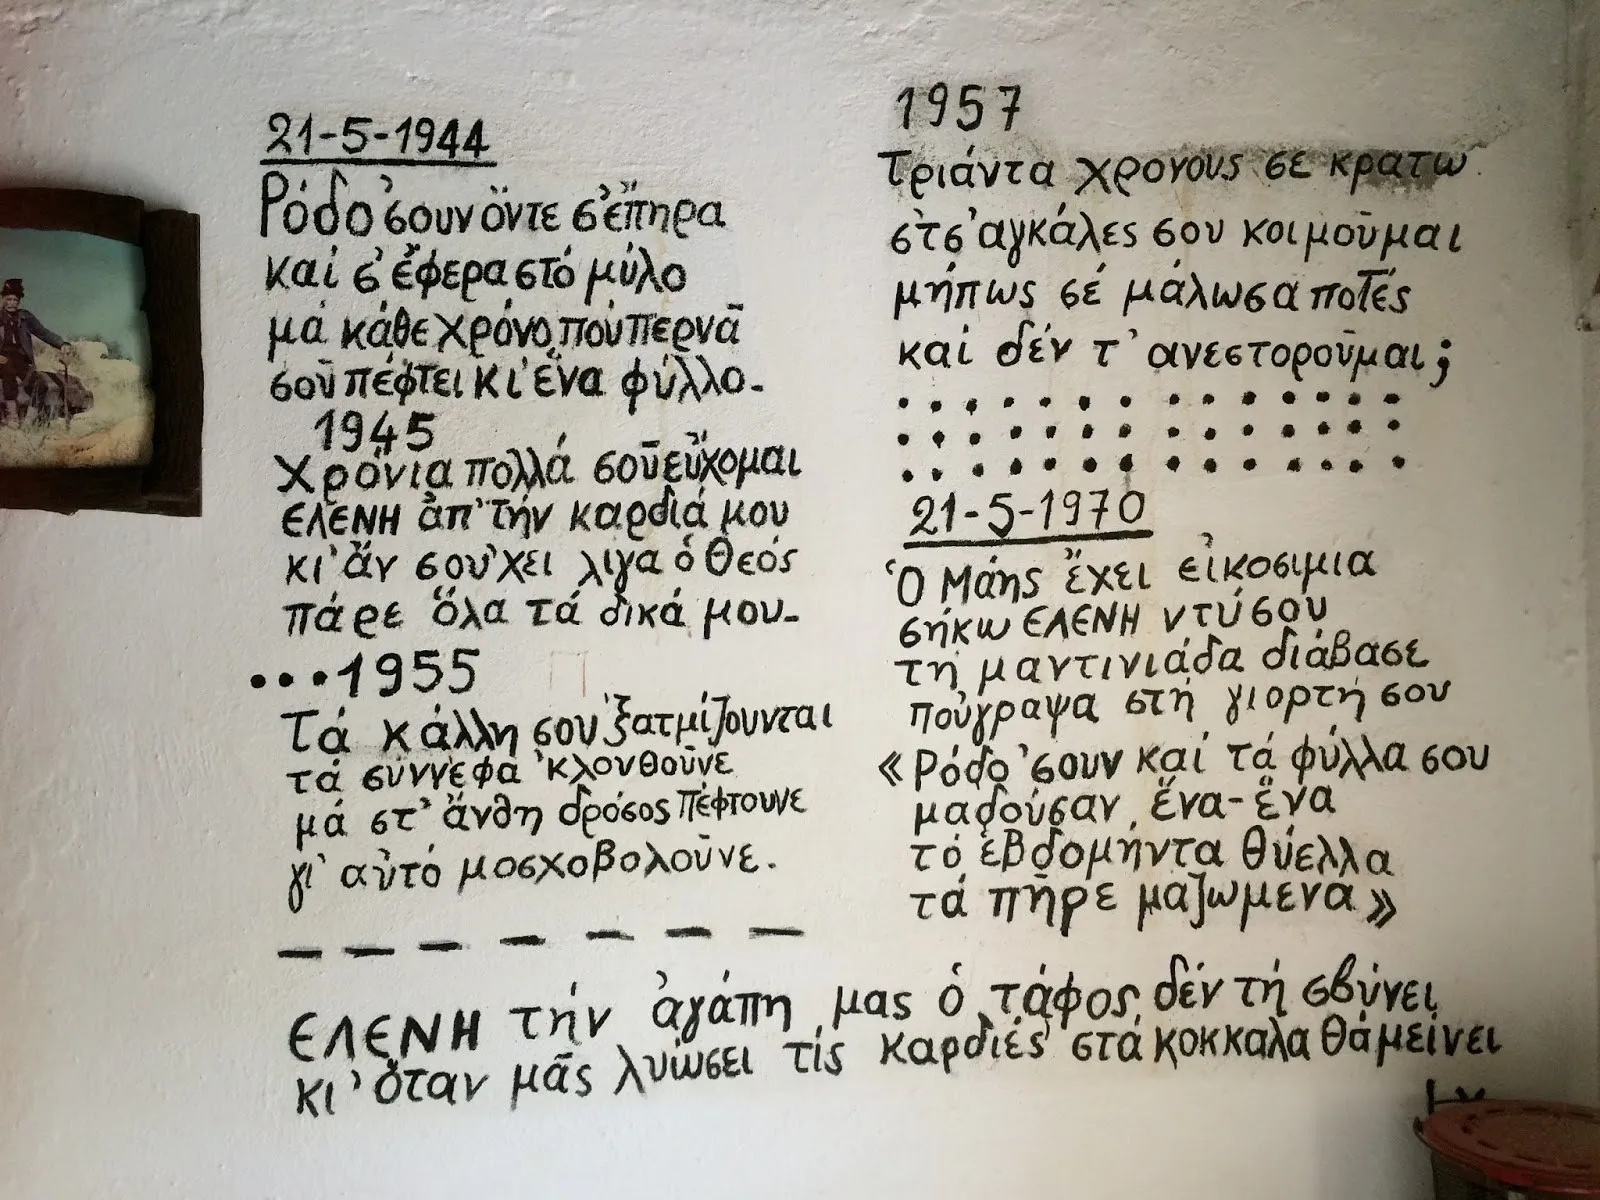 21-5-1944
Ρόδο 'σουν ὄντε σ' ἔπηρα
καί σ' ἔφερα στό μύλο
μά κάθε χρόνο πού περνᾶ
σοῦ πέφτει κι' ἕνα φύλλο-
1945
Χρόνια πολλά σοῦ εὔχομαι
ΕΛΕΝΗ ἀπ' τήν καρδιά μου
κι' ἄν σου 'χει λιγα ὁ Θεός
πάρε ὅλα τά δικά μου-
...1955
Τά κάλλη σου 'ξατμίζουνται
τά σύννεφα 'κλονθοῦνε
μά στ' ἄνθη δρόσος πέφτουνε
γι' αὐτό μοσχοβολοῦνε.
1957
Τριάντα χρονους σε κρατω
στσ' αγκάλες σου κοιμοῦμαι
μήπως σέ μάλωσα ποτές
καί δέν τ' ανεστοροῦμαι;
21-5-1970
Ὁ Μάης ἔχει εἰκοσιμια
σήκω ΕΛΕΝΗ ντύσου
τή μαντινιάδα διάβασε
πούγραψα στή γιορτή σου
«Ρόδο 'σουν καί τά φύλλα σου
μαδούσαν ἕνα-ἕνα
τό ἑβδομήντα θύελλα
τά πῆρε μαζωμενα»
ΕΛΕΝΗ τήν ἀγάπη μας ὁ τάφος δέν τή σβύνει
κι' ὅταν μᾶς λυώσει τίς καρδιές στά κοκκαλα θά μείνει